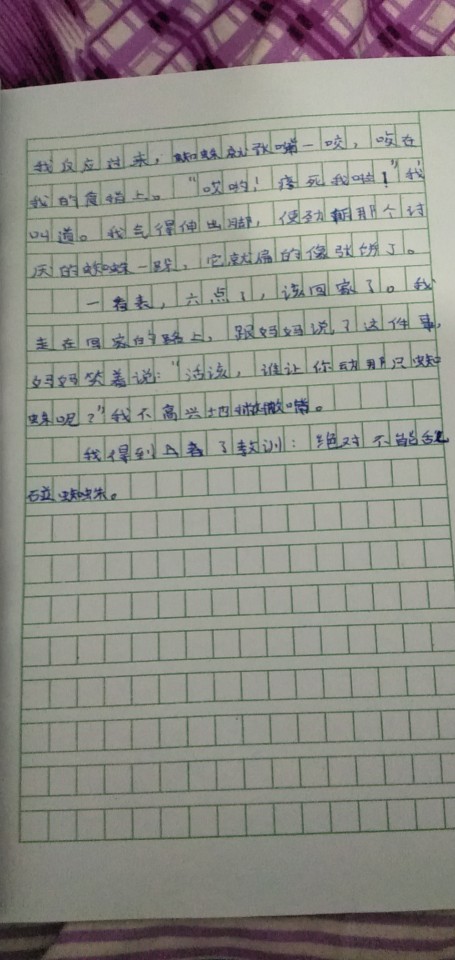 我反应过来，蜘蛛就张嘴一咬，咬在
我的食指上。“哎哟！疼死我啦！”我
叫道。我气得伸出脚，使劲朝那个讨
厌的蜘蛛一踩，它就扁的像张饼了。
一看表，六点了，该回家了。我
走在回家的路上，跟妈妈说了这件事，
妈妈笑着说：“活该，谁让你动那只蜘
蛛呢？”我不高兴地撇嘴。
我得到了教训：绝对不能
碰蜘蛛。